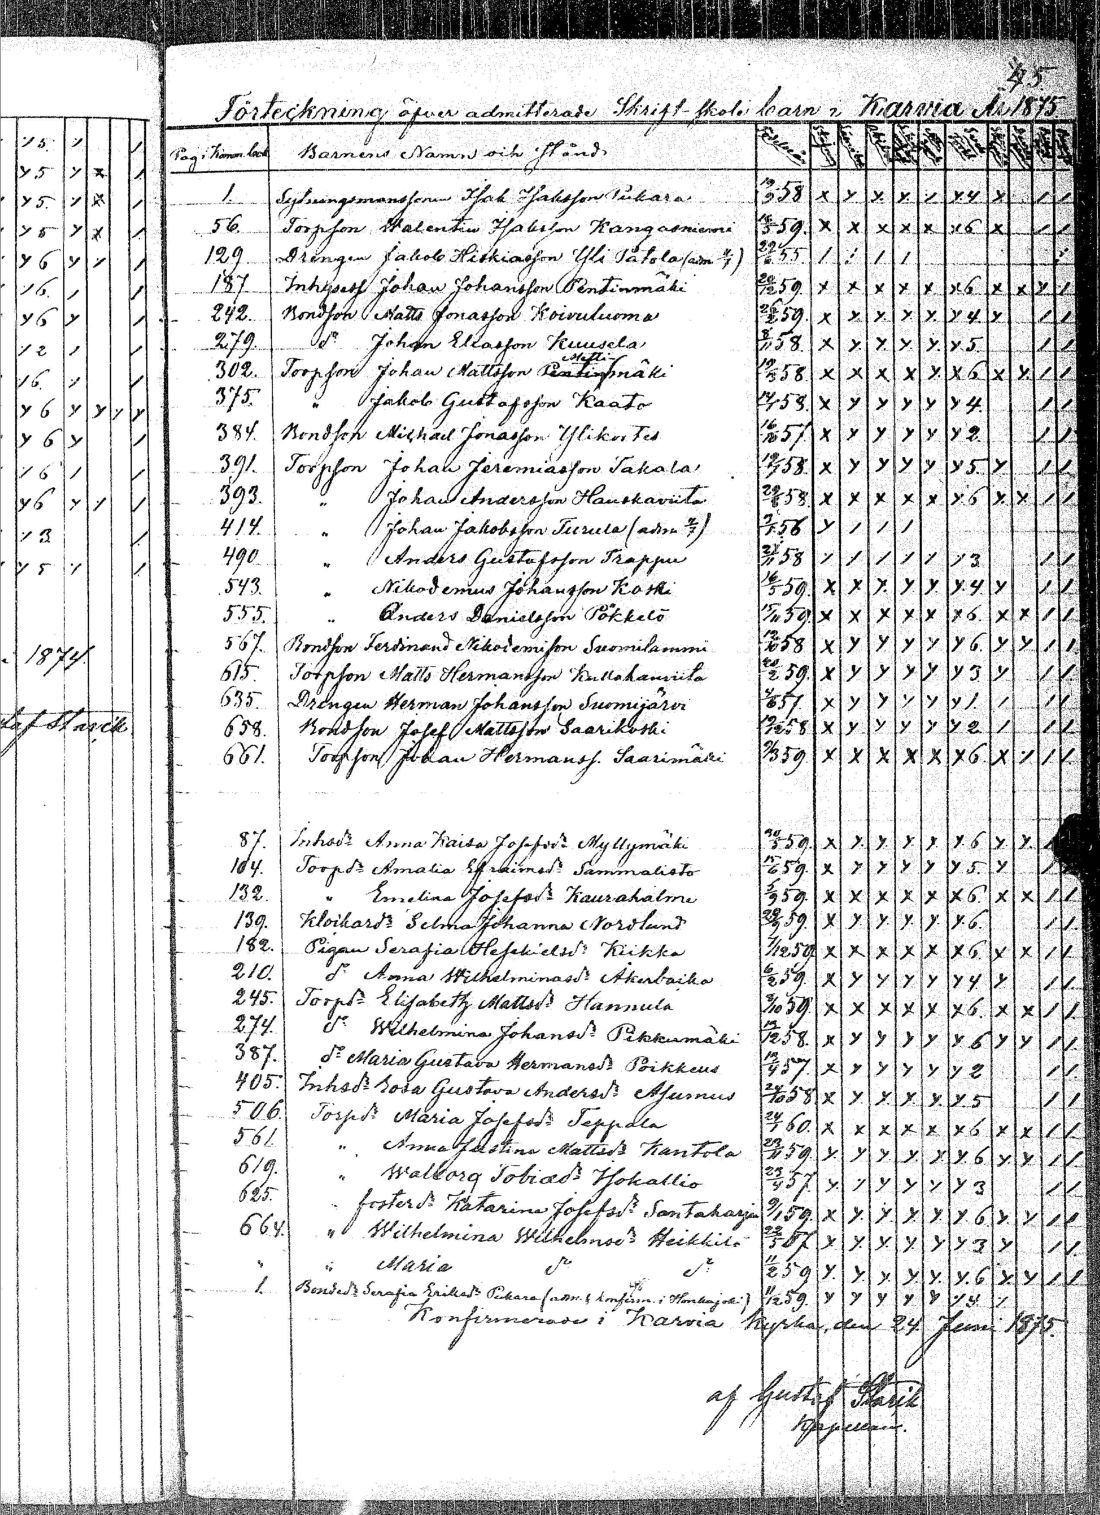 15 1 1
y5 y x 1
y5 y x 1
y5 y x 1
y6 y 1 1
16. 1 1
y6 y 1
12 1 1
16. 1 1
y6 y y y y
y6 y 1
16 1 1
y6 y 1 1
13 1
y5 y 1
1874.
Starck
45
Förteckning öfver admitterade Skrift-skole barn i Karvia År 1875
Pag i Komm. bok Barnens Namn och Stånd
1. Isak Isaksson Pukara 58 x y y. y. y y4 y 1 1
56. Torpson Walentin Isaksson Kangasniemi 59. x x x x x x6 x 1 1
129. Drengen Jakob Hiskiasson Yli Pätola (adm ) 55. 1 1 1 1
187. Inhysess Johan Johansson Pentinmäki 20/12 59. x x x x x x6 x x y 1
242. Bondson Matts Jonasson Koivuluoma 59. x y y y y y4 y 1 1
279. do Johan Eliasson Kuusela 8/11 58. x y y y y y5. 1 1
302. Torpson Johan Mattsson mäki 58. x x x x y. x6 x y. 1 1
375. " Jakob Gustafsson Kaato 58. x y y y y y4. 1 1
384. Bondson Michael Jonasson Ylikortes 16/10 57. x y y y y y2. 1 1
391. Torpson Johan Jeremiasson Takala 58. x y y y y y5. y 1 1
393. " Johan Andersson Hauskaviita 58. x x x x x x6 x x 1 1
414. " Johan Jakobsson Turula (adm ) 56 y 1 1 1
490 " Anders Gustafsson Trappu 58 1 1 1 1 1 13. 1 1
543. " Nikodemus Johansson Koski 16/5 59. x x y y y y4 y 1 1
555. " Anders Danielsson Pökkelö 15/11 59. x x x x x x6. x x 1 1
567. Bondson Ferdinand Nikodemisson Suomilammi 58 x y y y y y6. y y 1 1
615. Torpson Matts Hermansson Kullahanviita 59. x y y y y y3 y 1 1
635. Drengen Herman Johansson Suomijärvi 57. x y y y y y1. 1 1 1
658. Bondson Josef Mattsson Saarikoski 58 x y y y y y2 1 1 1
661. Torpson Johan Hermanss. Saarimäki 9/3 59. x x x x x x6. x y 1 1
87. Inhsdr Anna Kaisa Josefsdr Myllymäki 59. x y y y y y6 y y
104. Torpdr Amalia Efraimsdr Sammalisto 15/6 59. x y y y y y5. y 1 1
132. " Emelina Josefsdr Kauraholme 5/9 59. x x x x x x6. x x 1 1
139. Klockardr Selma Johanna Nordlund 59. x y y y y y6. 1 1
182. Pigan Serafia Hesekielsdr Kiikka 7/12 59. x x x x x x6 x x 1 1
210. do Anna Wilhelminasdr Åkerbacka 6/2 59. x y y y y y4 y 1 1
245. Torpdr Elisabeth Mattsdr Hannula 9/10 59. x x x x x x6. x x 1 1
274. do Wilhelmina Johansdr Pikkumäki 58. x y y y y y6 y y 1 1
387. do Maria Gustava Hermansdr Poikkeus 57. x y y y y y2 1 1
405. Inhsdr Rosa Gustava Andersdr Asumus 24/10 58 x y x y. y. y5 1 1
506. Torpdr Maria Josefsdr Teppala 24/1 60. x x x x x x6 x x 1 1
561. " Anna Justina Mattsdr Kantola 59. y y y y y y6 y y 1 1
619. " Walborg Tobiædr Isokallio 23/4 57. x y y y y y3 1 1
625. " fosterdr Katarina Josefsdr Santaharju 9/1 59. x y y y y y6 y y 1 1
664. " Wilhelmina Wilhelmsdr Heikkilä 57. x y y y y y3 y 1 1
" " Maria do do 11/2 59 y. y y y. y y6 y y 1 1
1. Bondedr Serafia Eriksdr Pukara (adm. & konfirm. i Honkajoki) 11/12 59. y y y y y y4. 1
Konfirmerade i Karvia Kyrka, den 24 Juni 1875.
af Gustaf Starck
Kapellan.